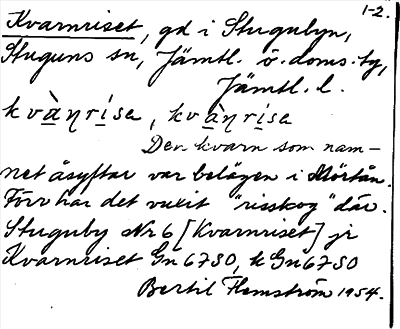 1-2.
Kvarnriset, gd i Stugubyn,
Stuguns sn, Jämtl. ö. doms. tg,
Jämtl. l.
kvànrísa, kvànrísa
Den kvarn som nam-
net åsyftar var belägen i Mörtån.
Förr har det vuxit "risskog" där.
Stuguby Nr 6 [Kvarnriset] jr
Kvarnriset Gn 6780, k Gn 6780
Bertil Flemström 1954.